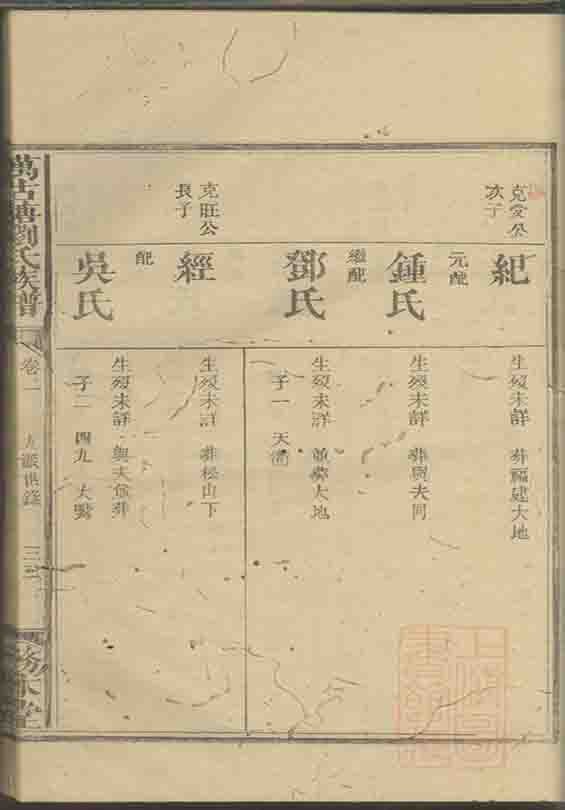 克愛公
次子
紀
生歿未詳 葬福建大地
元配
鍾氏
生歿未詳 葬與夫同
繼配
鄧氏
生歿未詳 葬大地
子一 天
克旺公
長子
經
生歿未詳 葬松山下
配
吳氏
生歿未詳 與夫合葬
子二 四九 大
萬古塘劉氏族譜
卷二
派世錄
三三
務本堂